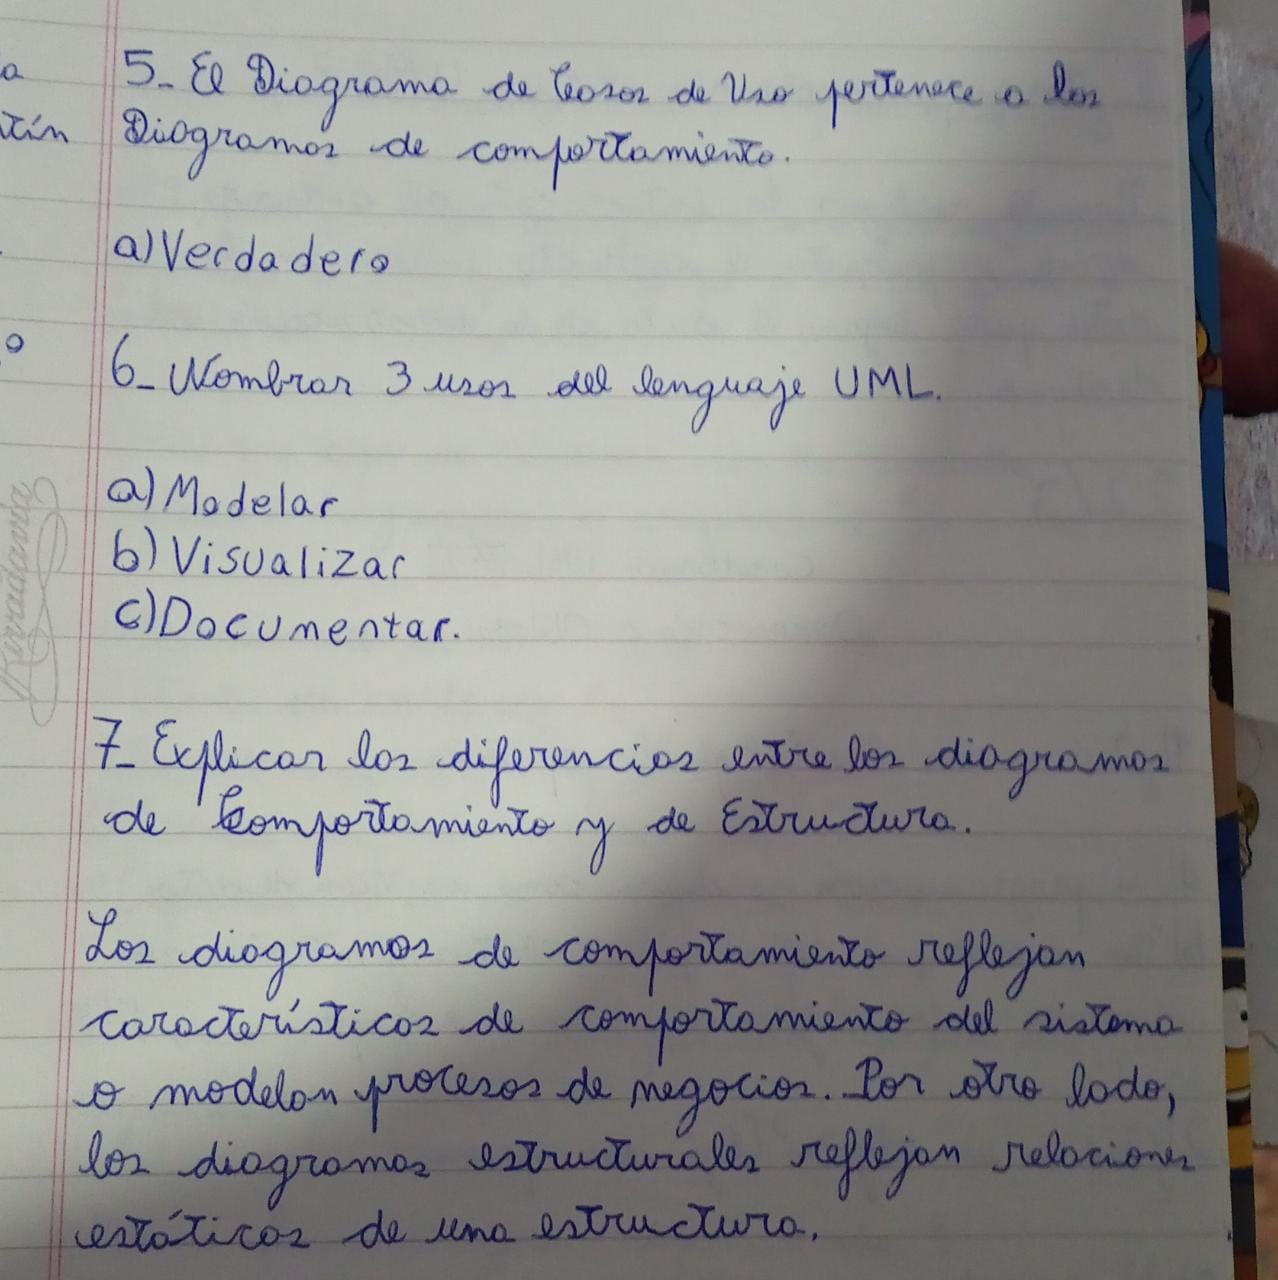 a
5_ El Diagrama de Casos de Uso pertenece a los
tín
Diagramas de comportamiento.
a) Verdadero
o
6_ Nombrar 3 usos del lenguaje UML.
a) Modelar
b) Visualizar
c) Documentar.
Rivadavia
7_ Explicar las diferencias entre los diagramas
de Comportamiento y de Estructura.
Los diagramas de comportamiento reflejan
características de comportamiento del sistema
o modelan procesos de negocios. Por otro lado,
los diagramas estructurales reflejan relaciones
estáticas de una estructura.